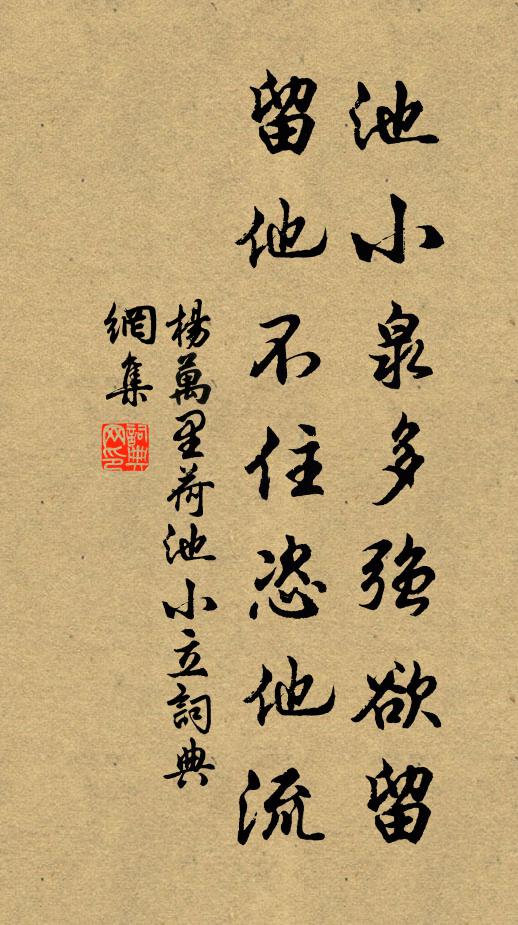 池小泉多強欲留
留他不住恣他流
楊萬里荷池小立詞典
網集
詞典
网印